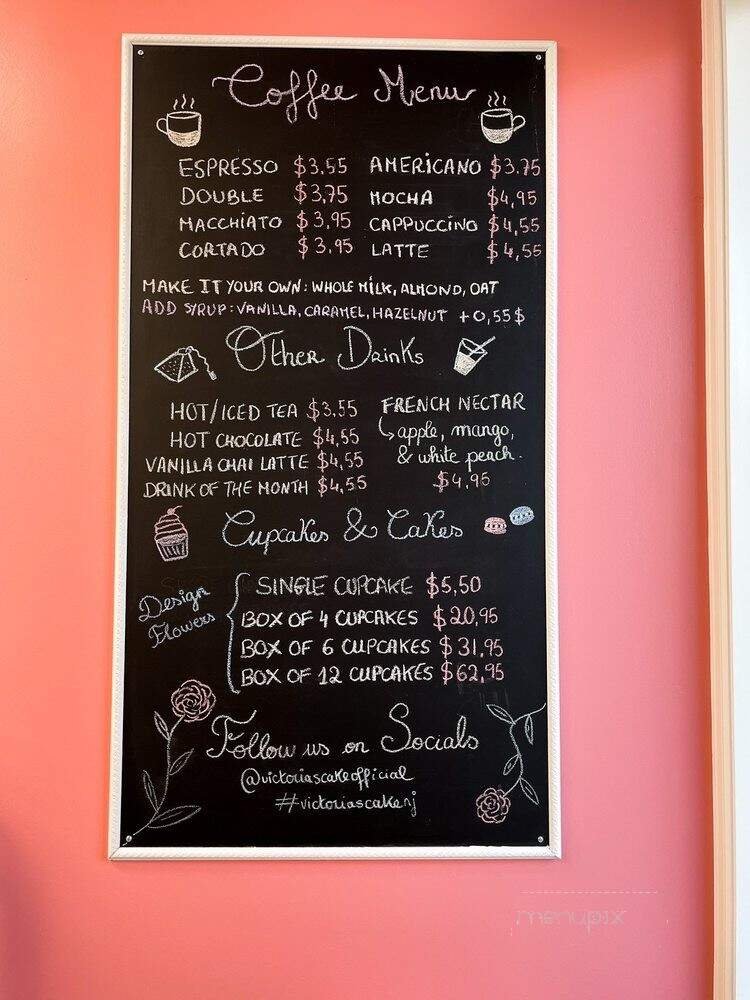 Coffee Menu
ESPRESSO $3.55 AMERICANO $3.75
DOUBLE $3,75 MOCHA $4,95
MACCHIATO $3,95 CAPPUCCINO $4,55
CORTADO $3.95 LATTE $4,55
MAKE IT YOUR OWN: WHOLE MILK, ALMOND, OAT
ADD SYRUP: VANILLA, CARAMEL, HAZELNUT +0,55$
Other Drinks
HOT/ICED TEA $3.55
HOT CHOCOLATE $4,55
VANILLA CHAI LATTE $4,55
DRINK OF THE MONTH $4,55
FRENCH NECTAR
apple, mango,
& white peach.
$4,95
Cupcakes & Cakes
Design
Flowers
SINGLE CUPCAKE $5,50
BOX OF 4 CUPCAKES $20,95
BOX OF 6 CUPCAKES $31,95
BOX OF 12 CUPCAKES $62,95
Follow us on Socials
@victoriascakeofficial
#victoriascakenj
menupix